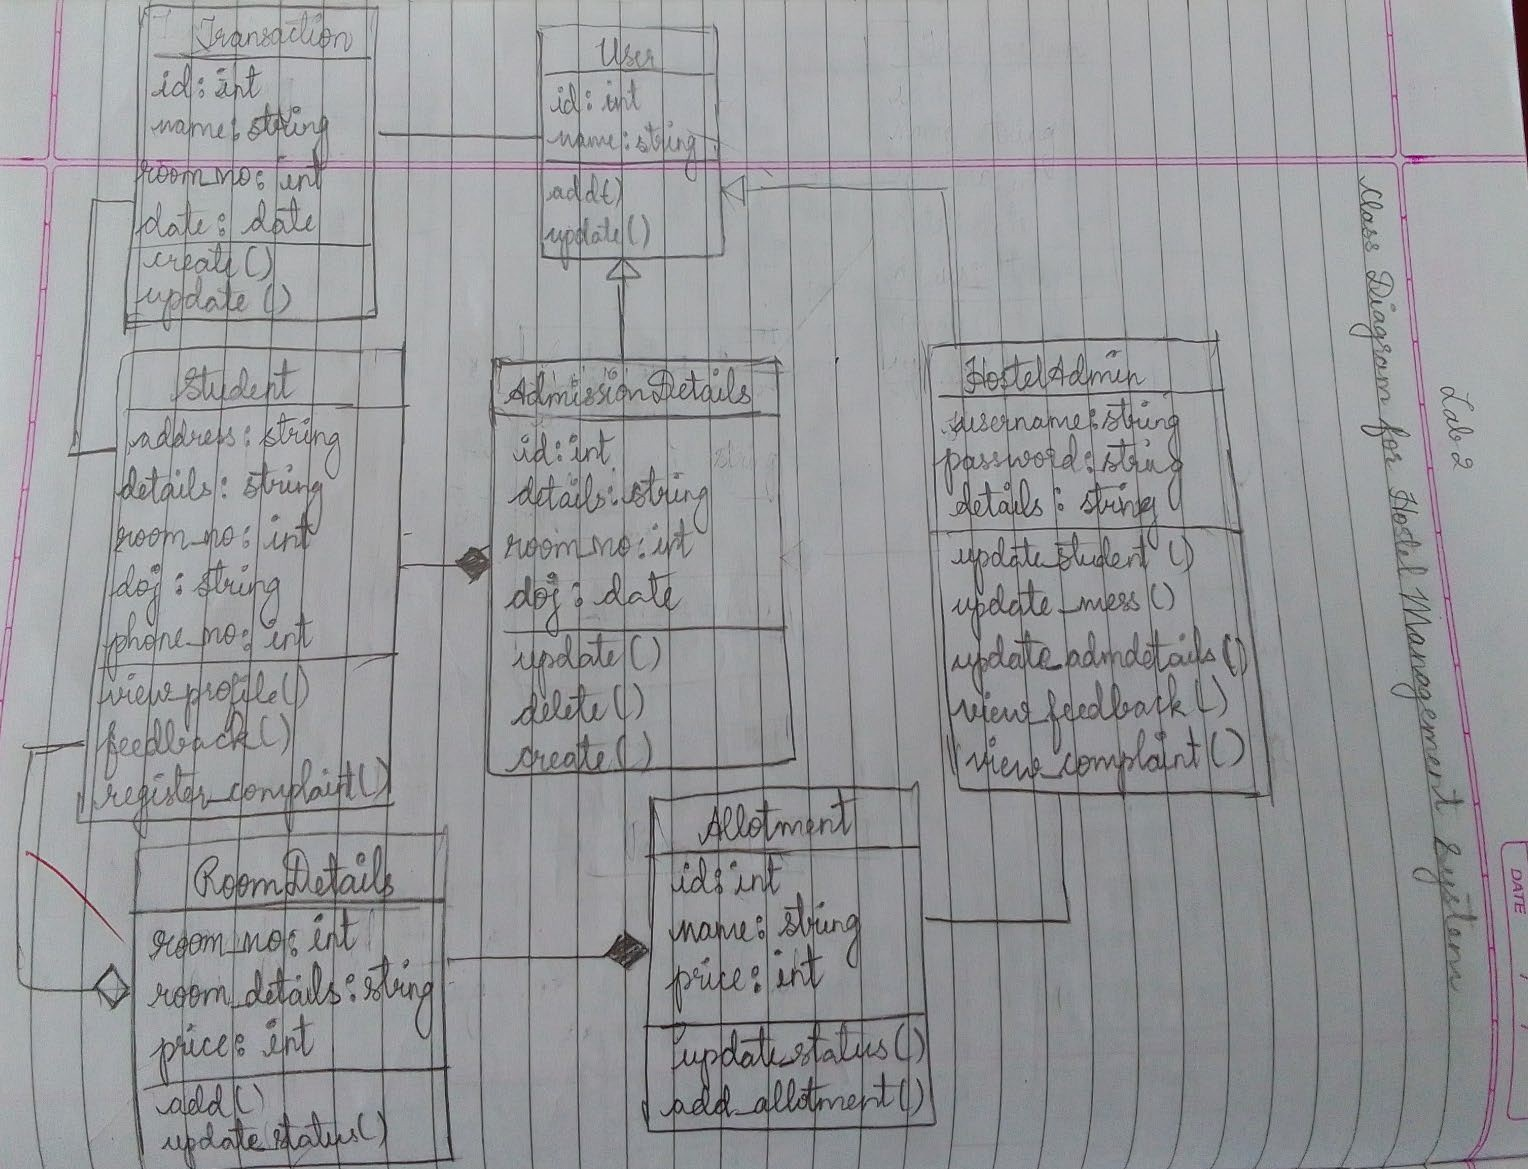 Lab 2
Class Diagram for Hostel Management System
DATE
Transaction
id: int
name: string
room_no: int
date: date
create()
update()
User
id: int
name: string
add()
update()
Student
address: string
details: string
room_no: int
doj: string
phone_no: int
view_profile()
feedback()
register_complaint()
AdmissionDetails
id: int
details: string
room_no: int
doj: date
update()
delete()
create()
HostelAdmin
username: string
password: string
details: string
update_student()
update_mess()
update_admdetails()
view_feedback()
view_complaint()
RoomDetails
room_no: int
room_details: string
price: int
add()
update_status()
Allotment
id: int
name: string
price: int
update_status()
add_allotment()